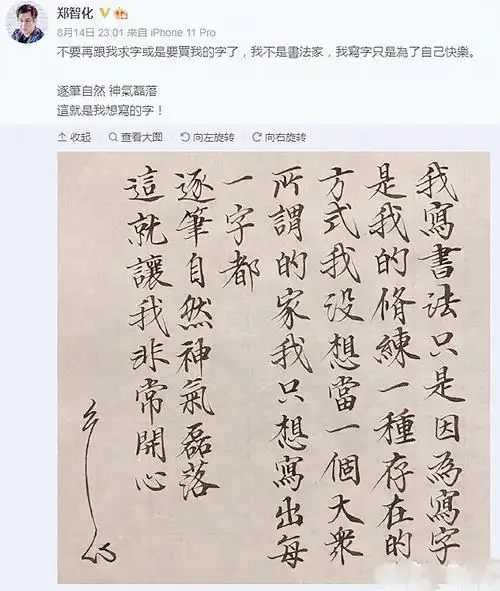 郑智化
8月14日 23:01 来自 iPhone 11 Pro
不要再跟我求字或是要買我的字了，我不是書法家，我寫字只是為了自己快樂。
逐筆自然 神氣磊落
這就是我想寫的字！
收起 查看大图 向左旋转 向右旋转
我寫書法只是因為寫字
是我的脩練一種存在的
方式我没想當一個大衆
所謂的家我只想寫出每
一字都
逐筆自然神氣磊落
這就讓我非常開心